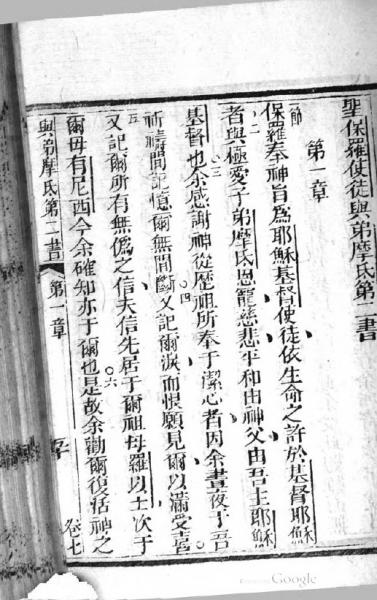 聖保羅使徒與弟摩氏第二書
第一章
一節
保羅奉神旨爲耶穌基督使徒依生命之許於基督耶穌
二
者與極愛子弟摩氏恩寵慈悲平和由神父由吾主耶穌
三
基督也余感謝神從歷祖所奉于潔心者因余晝夜于吾
四
祈禱間記憶爾無間斷又記爾淚而恨願見爾以滿受喜
五
又記爾所有無僞之信夫信先居于爾祖母羅以士次于
六
爾母有尼西今余確知亦于爾也是故余勸爾復活神之
與弟摩氏第二書
第一章
卷七
Google